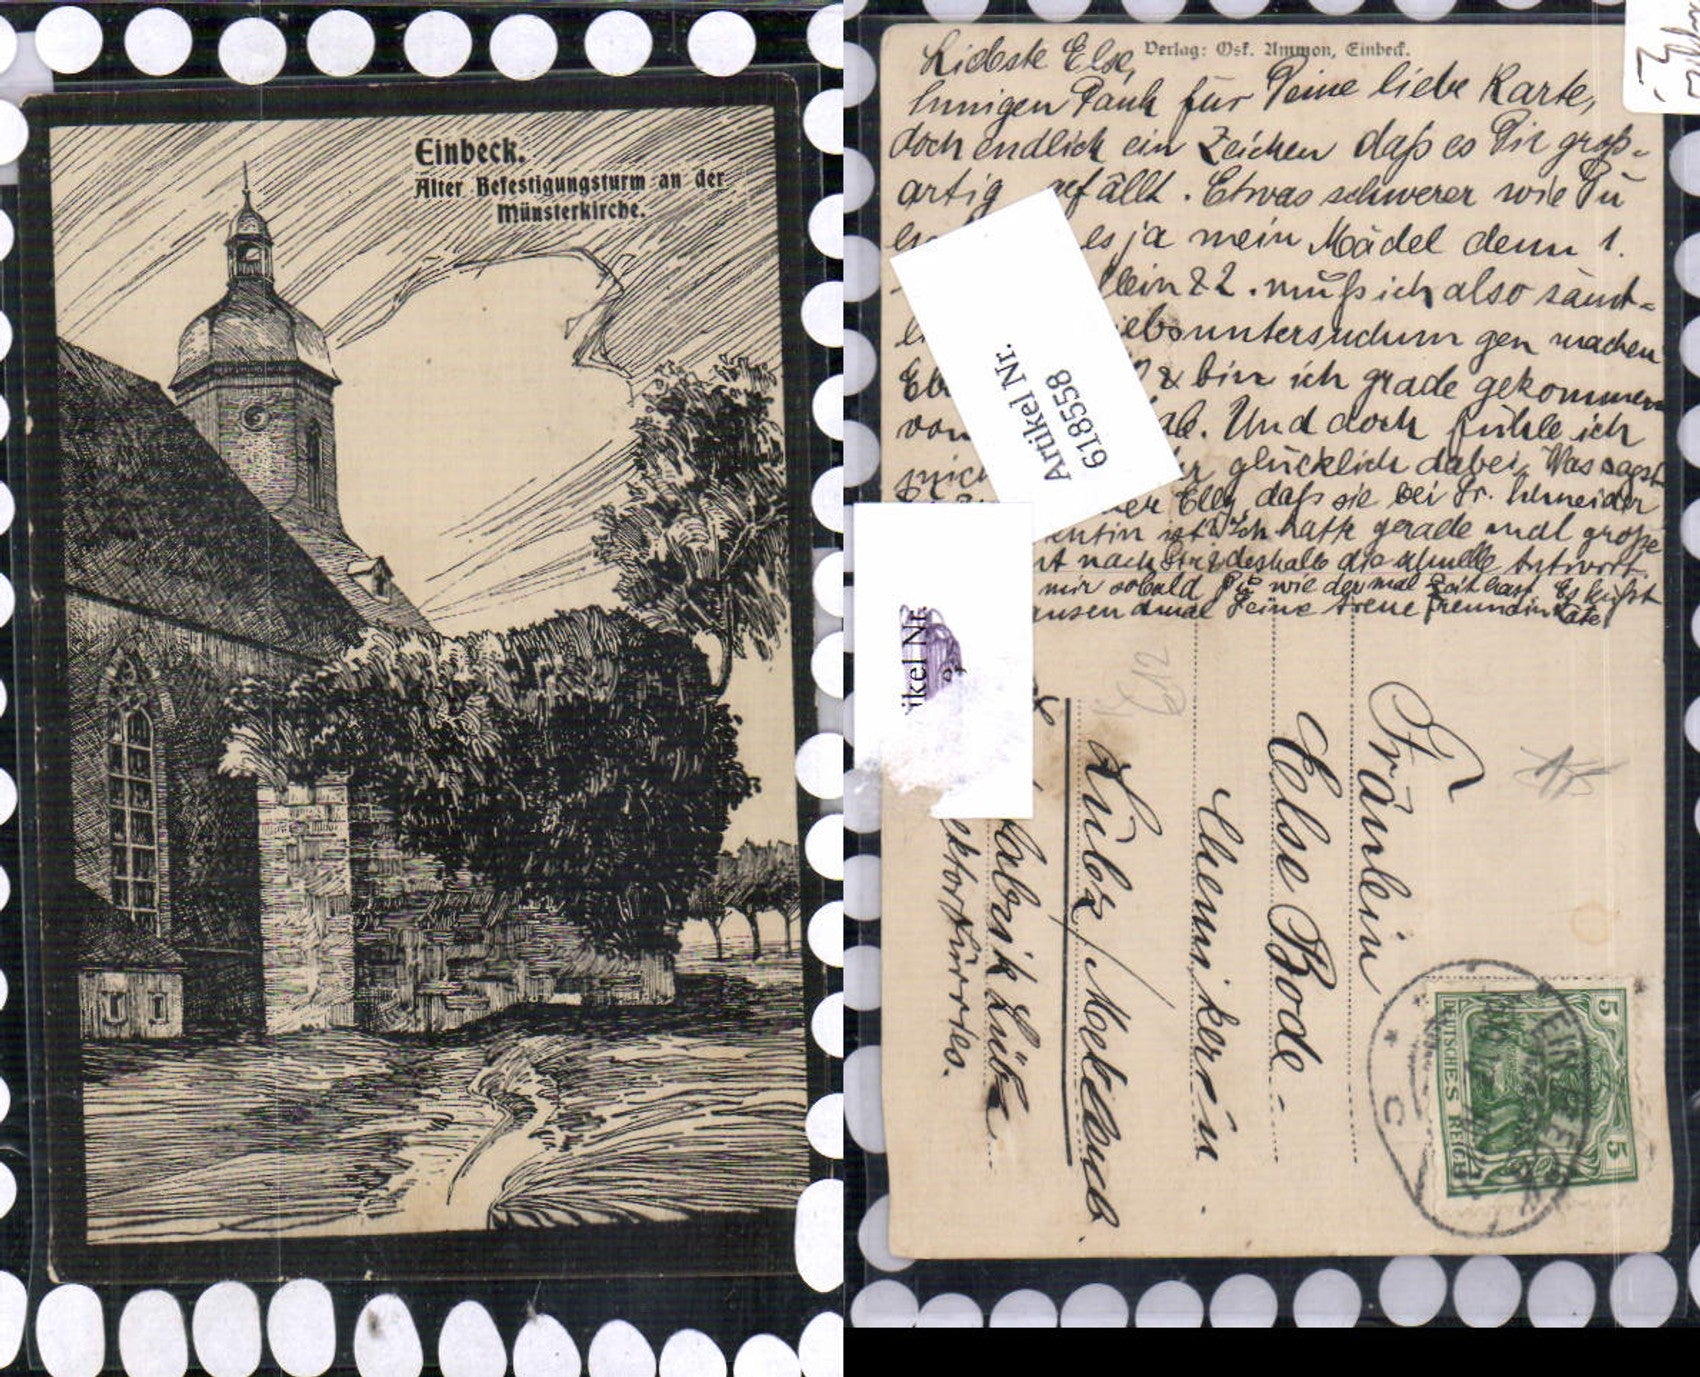 Einbeck.
Alter Befestigungsturm an der
Münsterkirche.
Verlag: Osk. Ammon, Einbeck.
Liebste Else,
Innigen Dank für Deine liebe Karte,
doch endlich ein Zeichen daß es Dir groß-
artig gefällt. Etwas schwerer wie Du
es ja mein Mädel denn 1.
allein & 2. muß ich also sämt-
iebsuntersuchungen machen
& bin ich grade gekommen
von ab. Und doch fühle ich
mich glücklich dabei. Was sagst
Elly, daß sie bei Dr. Schneider
entin ist. Ich hatte gerade mal große
nach Dir & deshalb die schnelle Antwort.
mir sobald Du wieder mal Zeit hast Es küßt
ausendmal Deine treue Freundin Käte
Artikel Nr.
618558
ikel Nr.
Fräulein
Else Bode.
Chemikerin.
Lübz / Mecklenb.
Fabrik Lübz
612
DEUTSCHES REICH
5
5
EINBECK
* *
C